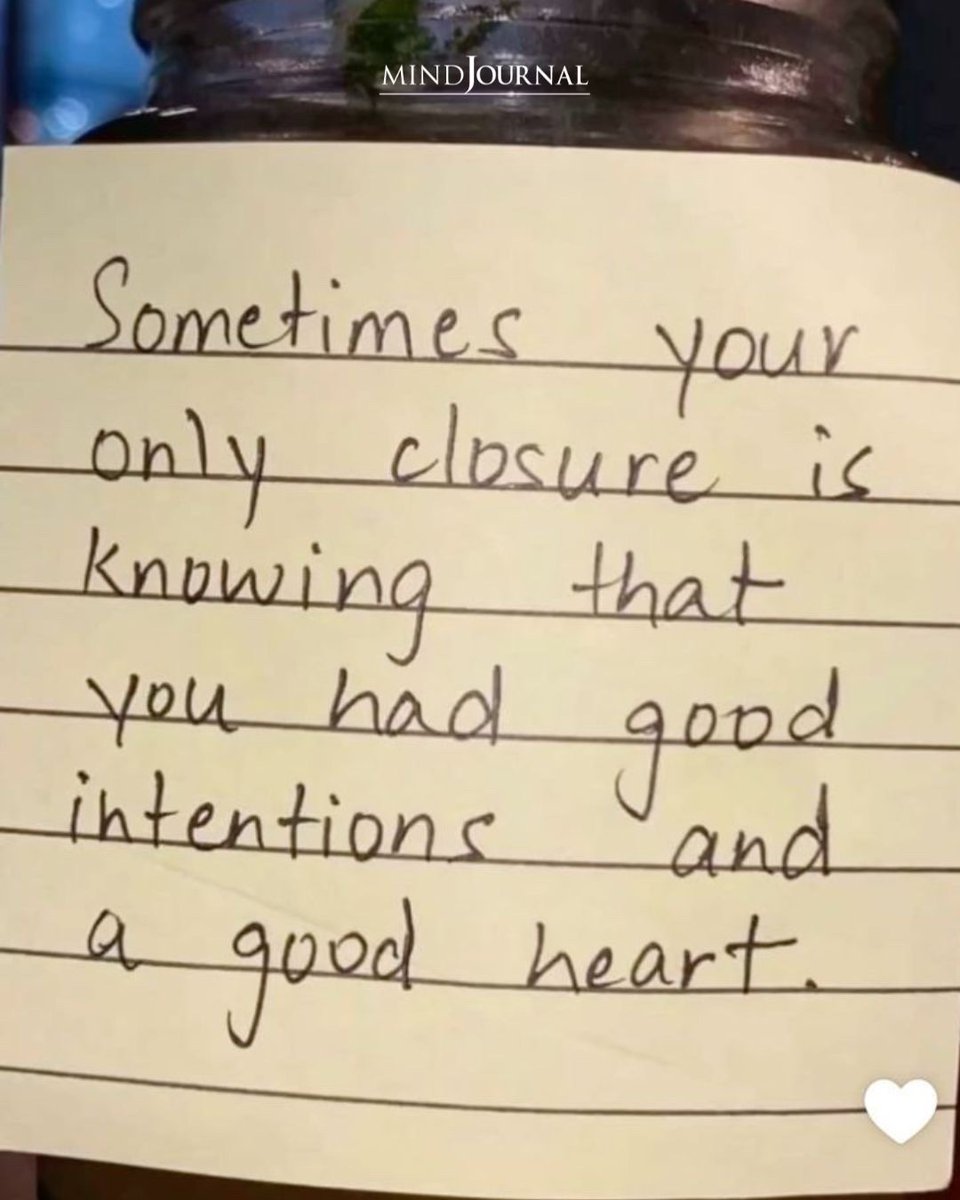 MINDJOURNAL
Sometimes your
only closure is
knowing that
you had good
intentions and
a good heart.